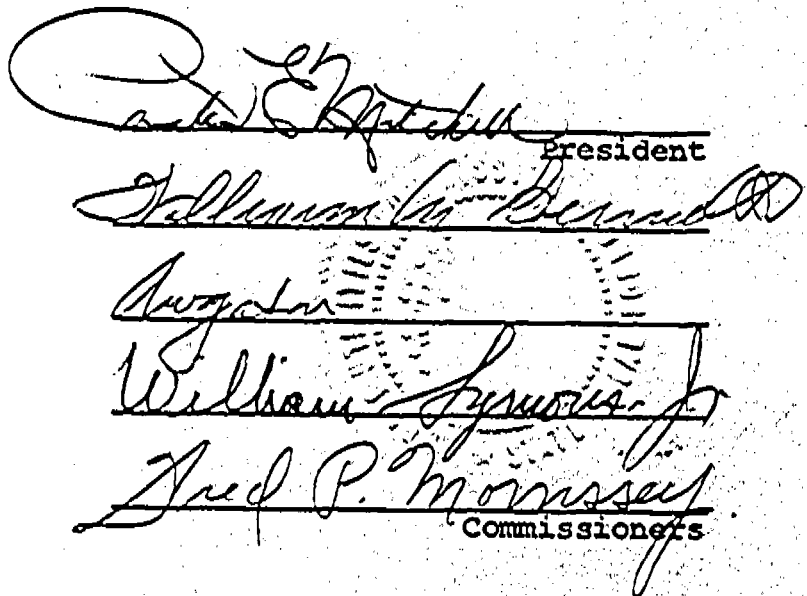 E Mitchell
President
William M Bennett
William Symons Jr
Fred P. Morrissey
Commissioners